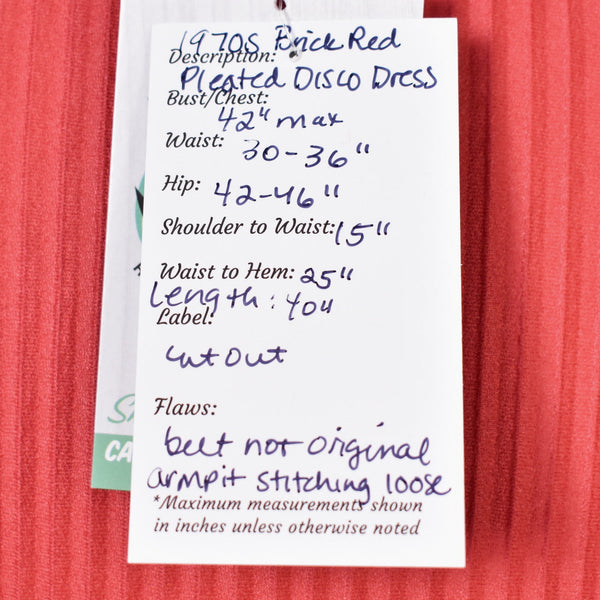 1970s Brick Red
Description:
Pleated Disco Dress
Bust/Chest:
42" max
Waist: 30-36"
Hip: 42-46"
Shoulder to Waist: 15"
Waist to Hem: 25"
Length: 40"
Label:
Cut Out
Flaws:
belt not original
armpit stitching loose
*Maximum measurements shown
in inches unless otherwise noted
CA